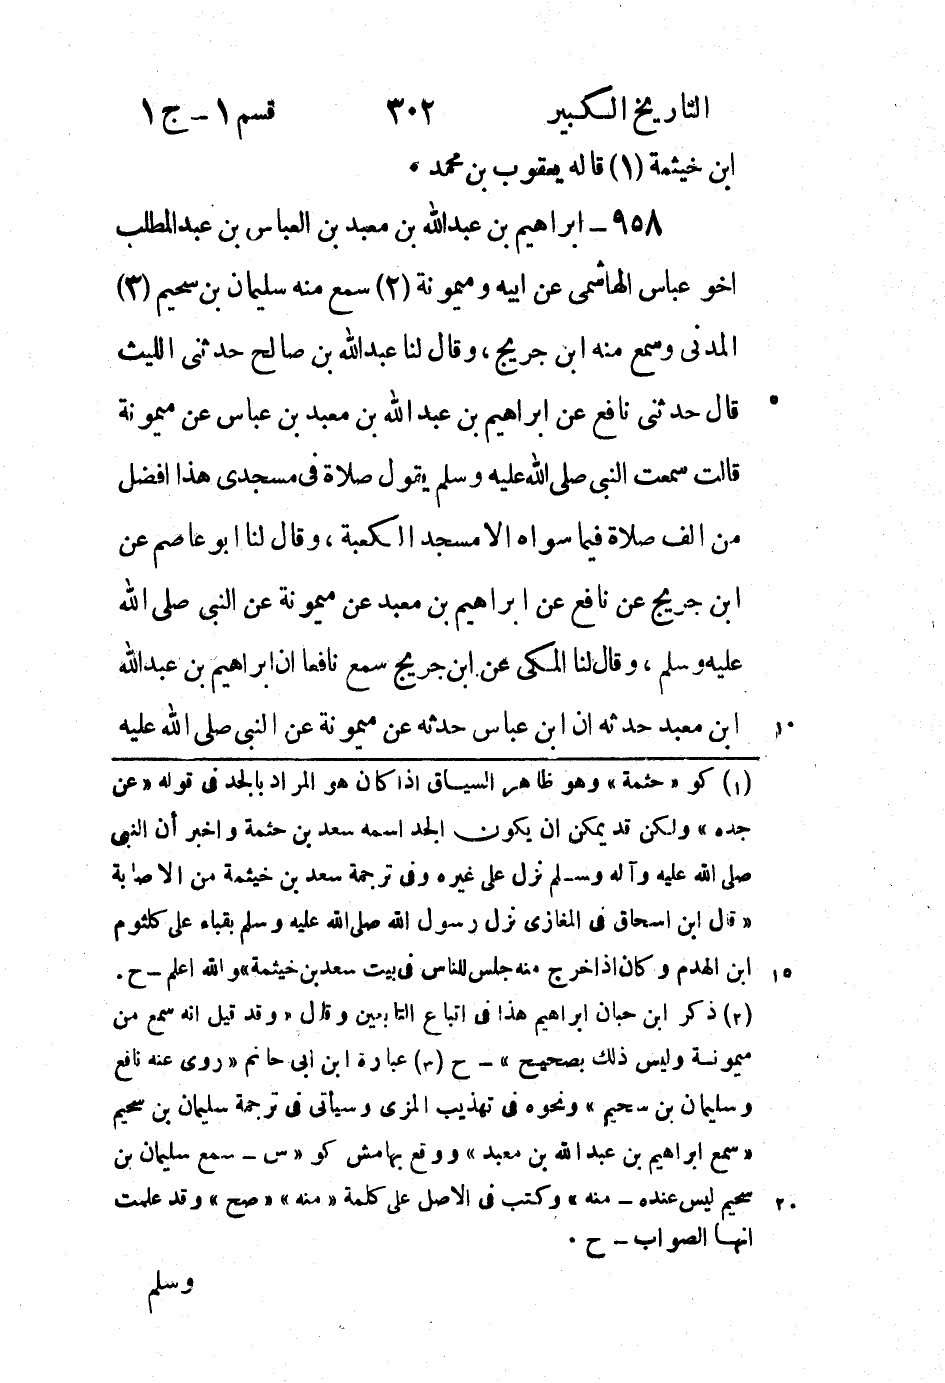 التاريخ الكبير ٣٠٢ قسم ١ - ج ١
ابن خيثمة (١) قاله يعقوب بن محمد ٠
٩٥٨ - ابراهيم بن عبدالله بن معبد بن العباس بن عبدالمطلب
اخو عباس الهاشمى عن ابيه وميمونة (٢) سمع منه سليمان بن سحيم (٣)
المدنى وسمع منه ابن جريج ، وقال لنا عبدالله بن صالح حدثنى الليث
قال حدثنى نافع عن ابراهيم بن عبدالله بن معبد بن عباس عن ميمونة ٥
قالت سمعت النبى صلى الله عليه وسلم يقول صلاة فى مسجدى هذا افضل
من الف صلاة فيما سواه الا مسجد الكعبة ، وقال لنا ابو عاصم عن
ابن جريج عن نافع عن ابراهيم بن معبد عن ميمونة عن النبى صلى الله
عليه وسلم ، وقال لنا المكى عن ابن جريج سمع نافعا ان ابراهيم بن عبدالله
ابن معبد حدثه ان ابن عباس حدثه عن ميمونة عن النبى صلى الله عليه ١٠
(١) كو « حثمة » وهو ظاهر السياق اذا كان هو المراد بالجد فى قوله « عن
جده » ولكن قد يمكن ان يكون الجد اسمه سعد بن حثمة واخبر أن النبى
صلى الله عليه وآله وسلم نزل على غيره وفى ترجمة سعد بن خيثمة من الاصابة
« قال ابن اسحاق فى المغازى نزل رسول الله صلى الله عليه وسلم بقباء على كلثوم
ابن الهدم وكان اذا خرج منه جلس للناس فى بيت سعد بن خيثمة » والله اعلم - ح . ١٥
(٢) ذكر ابن حبان ابراهيم هذا فى اتباع التابعين وقال « وقد قيل انه سمع من
ميمونة وليس ذلك بصحيح » - ح (٣) عبارة ابن ابى حاتم « روى عنه نافع
وسليمان بن سحيم » ونحوه فى تهذيب المزى وسيأتى فى ترجمة سليمان بن سحيم
« سمع ابراهيم بن عبد الله بن معبد » ووقع بهامش كو « س - سمع سليمان بن
سحيم ليس عنده - منه » وكتب فى الاصل على كلمة « منه » « صح » وقد علمت ٢٠
انها الصواب - ح ٠
وسلم